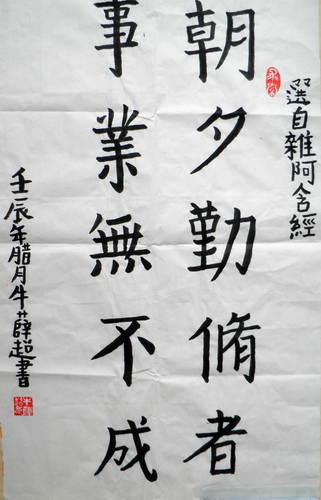 選自雜阿含經
朝夕勤脩者
事業無不成
壬辰年腊月牛薛超書